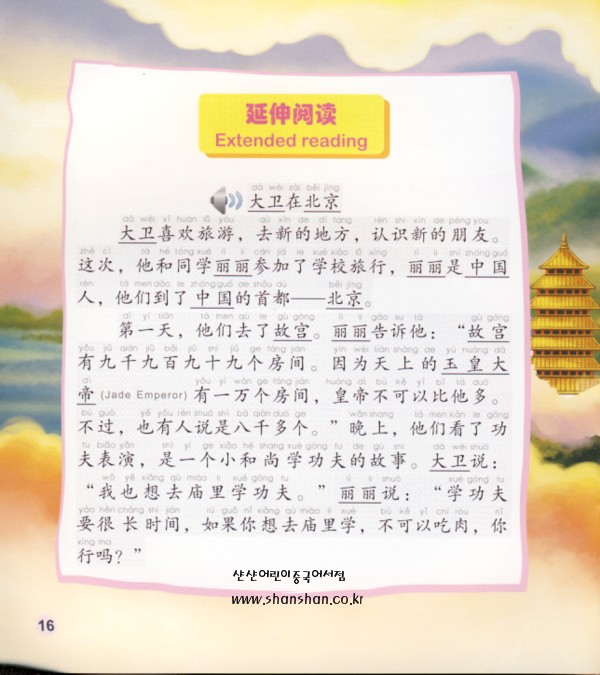 延伸阅读
Extended reading
dà wèi zài běi jīng
大卫在北京
dà wèi xǐ huan lǚ yóu qù xīn de dì fang rèn shi xīn de péng you
大卫喜欢旅游，去新的地方，认识新的朋友。
zhè cì tā hé tóng xué lì li cān jiā le xué xiào lǚ xíng lì li shì zhōng guó
这次，他和同学丽丽参加了学校旅行，丽丽是中国
rén tā men dào le zhōng guó de shǒu dū běi jīng
人，他们到了中国的首都——北京。
dì yī tiān tā men qù le gù gōng lì li gào su tā gù gōng
第一天，他们去了故宫。丽丽告诉他：“故宫
yǒu jiǔ qiān jiǔ bǎi jiǔ shí jiǔ ge fáng jiān yīn wèi tiān shàng de yù huáng dà
有九千九百九十九个房间。因为天上的玉皇大
dì yǒu yí wàn ge fáng jiān huáng dì bù kě yǐ bǐ tā duō
帝 (Jade Emperor) 有一万个房间，皇帝不可以比他多。
bú guò yě yǒu rén shuō shì bā qiān duō ge wǎn shang tā men kàn le gōng
不过，也有人说是八千多个。”晚上，他们看了功
fu biǎo yǎn shì yí ge xiǎo hé shang xué gōng fu de gù shi dà wèi shuō
夫表演，是一个小和尚学功夫的故事。大卫说：
wǒ yě xiǎng qù miào li xué gōng fu lì li shuō xué gōng fu
“我也想去庙里学功夫。”丽丽说：“学功夫
yào hěn cháng shí jiān rú guǒ nǐ xiǎng qù miào li xué bù kě yǐ chī ròu nǐ
要很长时间，如果你想去庙里学，不可以吃肉，你
xíng ma
行吗？”
샨샨어린이중국어서점
www.shanshan.co.kr
16